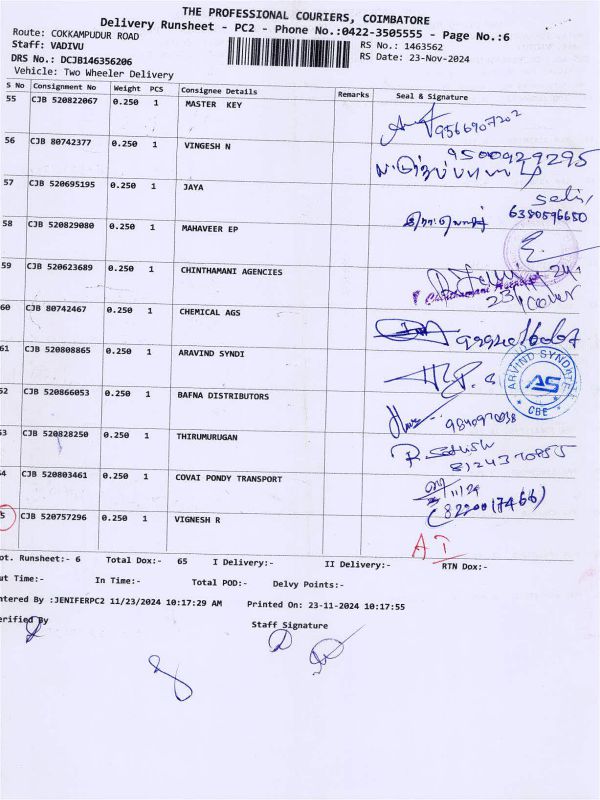 THE PROFESSIONAL COURIERS, COIMBATORE
Delivery Runsheet - PC2 - Phone No.:0422-3505555 - Page No.:6
Route: COKKAMPUDUR ROAD
RS No.: 1463562
Staff: VADIVU
RS Date: 23-Nov-2024
DRS No.: DCJB146356206
Vehicle: Two Wheeler Delivery
S No Consignment No Weight PCS Consignee Details Remarks Seal & Signature
55 CJB 520822067 0.250 1 MASTER KEY
9566907202
56 CJB 80742377 0.250 1 VINGESH N
9500929295
57 CJB 520695195 0.250 1 JAYA
6380596650
58 CJB 520829080 0.250 1 MAHAVEER EP
59 CJB 520623689 0.250 1 CHINTHAMANI AGENCIES
Chinthamani
60 CJB 80742467 0.250 1 CHEMICAL AGS
61 CJB 520808865 0.250 1 ARAVIND SYNDI
ARVIND SYNDICATE
AS
CBE
52 CJB 520866053 0.250 1 BAFNA DISTRIBUTORS
53 CJB 520828250 0.250 1 THIRUMURUGAN
R. Sathish
8124370855
54 CJB 520803461 0.250 1 COVAI PONDY TRANSPORT
5 CJB 520757296 0.250 1 VIGNESH R
ot. Runsheet:- 6 Total Dox:- 65 I Delivery:- II Delivery:- RTN Dox:-
ut Time:- In Time:- Total POD:- Delvy Points:-
ntered By :JENIFERPC2 11/23/2024 10:17:29 AM Printed On: 23-11-2024 10:17:55
erified By Staff Signature